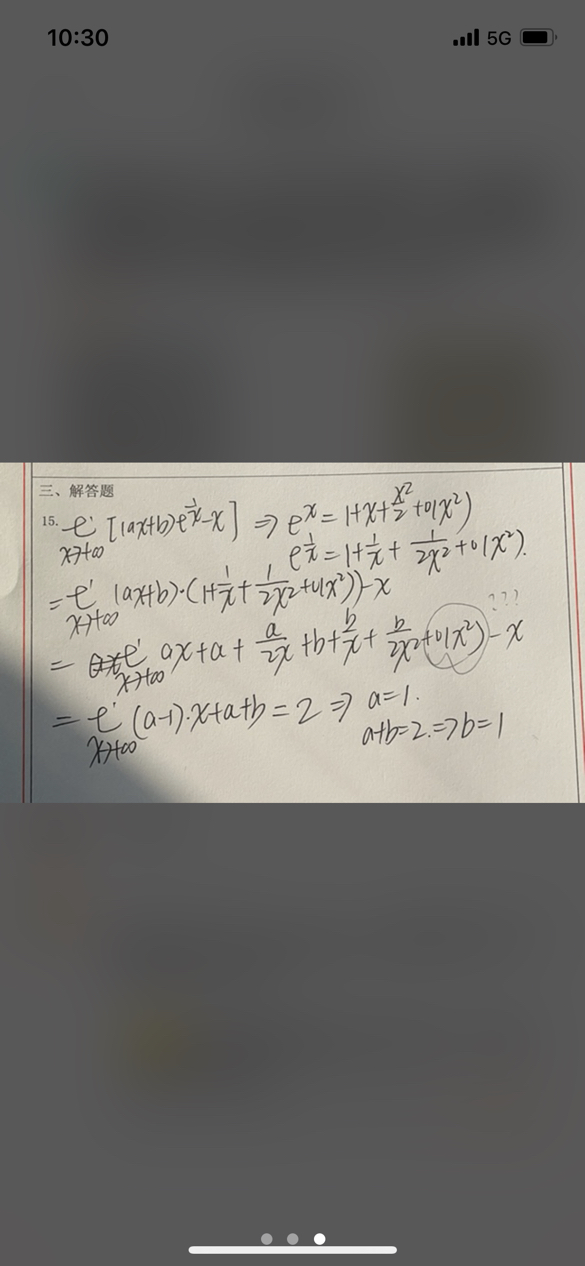 10:30
5G
三、解答题
15. ℓ [(ax+b)e^{1/x}-x] ⇒ e^x = 1+x+x²/2+o(x²)
x→+∞
e^{1/x} = 1+1/x+1/2x²+o(x²).
= ℓ (ax+b)·(1+1/x+1/2x²+o(x²))-x
x→+∞
???
= ℓ ax+a+a/2x+b+b/x+b/2x²+o(x²)-x
x→+∞
= ℓ (a-1)·x+a+b=2 ⇒ a=1.
x→+∞
a+b=2.⇒b=1